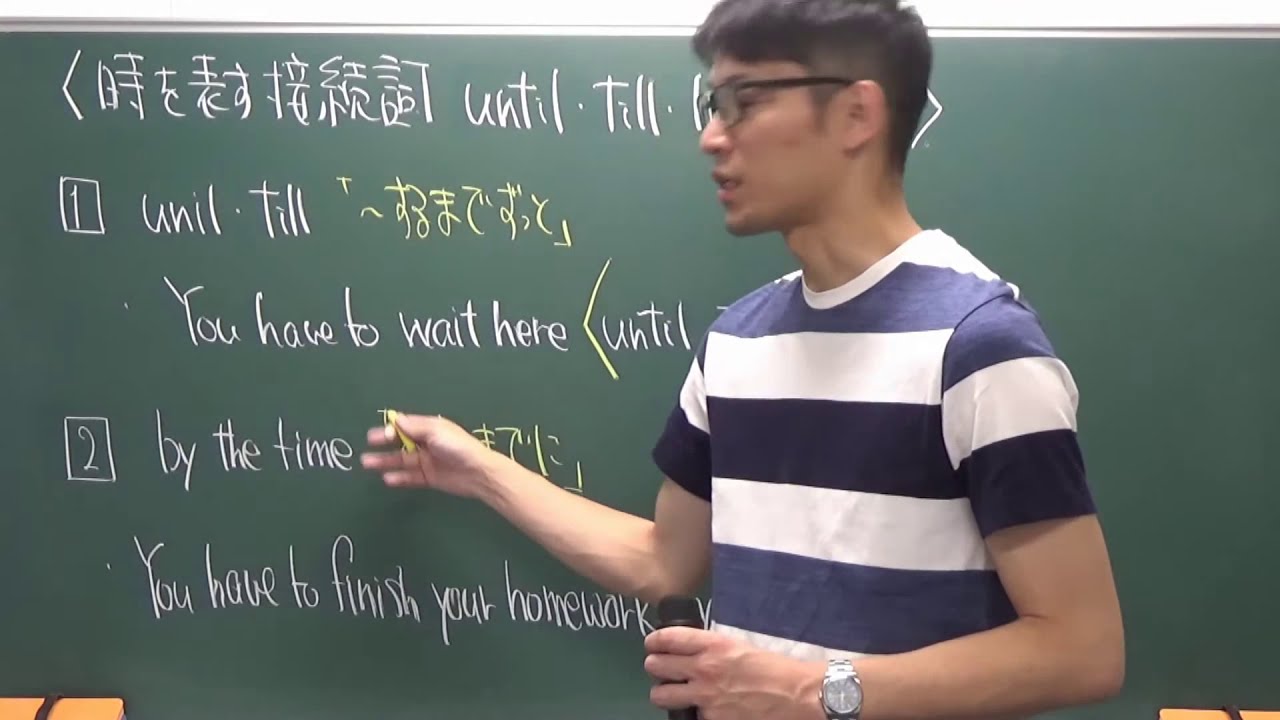 〈時を表す接続詞 until・till・ 〉
1 unil・till 「~するまでずっと」
・ You have to wait here 〈until
2 by the time 「 までに」
・ You have to finish your homework